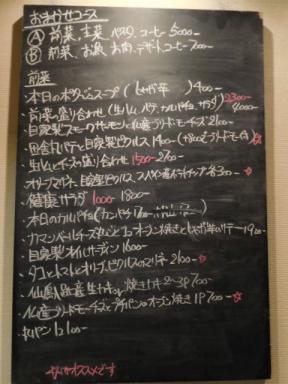 おまかせコース
Ⓐ 前菜、主菜、パスタ、コーヒー 5000-
Ⓑ 前菜、お魚、お肉、デザート、コーヒー 7000-
前菜
・本日のポタージュスープ (じゃが芋) 400-
・前菜の盛り合わせ (生ハム パテ カルパッチョ サラダ) 2300- 4000-
・自家製スモークサーモンと 2100-
・田舎風パテと自家製ピクルス 1400-
・生ハムとチーズの盛り合わせ 1500- 2700-
・オリーブマリネ、自家製ピクルス、 各300- ☆
・健康サラダ 1000- 1800-
・本日のカルパッチョ (カンパチ)
・カマンベールチーズ オーブン焼きとじゃが芋のソテー 1900-
・自家製オイルサーディン 1600-
・タコとトマトとオリーブ、ピクルスのマリネ 2100- ☆
・仙鳳趾産生カキ or 焼きカキ 2P 700-
・ モッツァレラチーズとプチパンのオーブン焼き 1P 700- ☆
・パン 1コ 100-
☆はオススメです